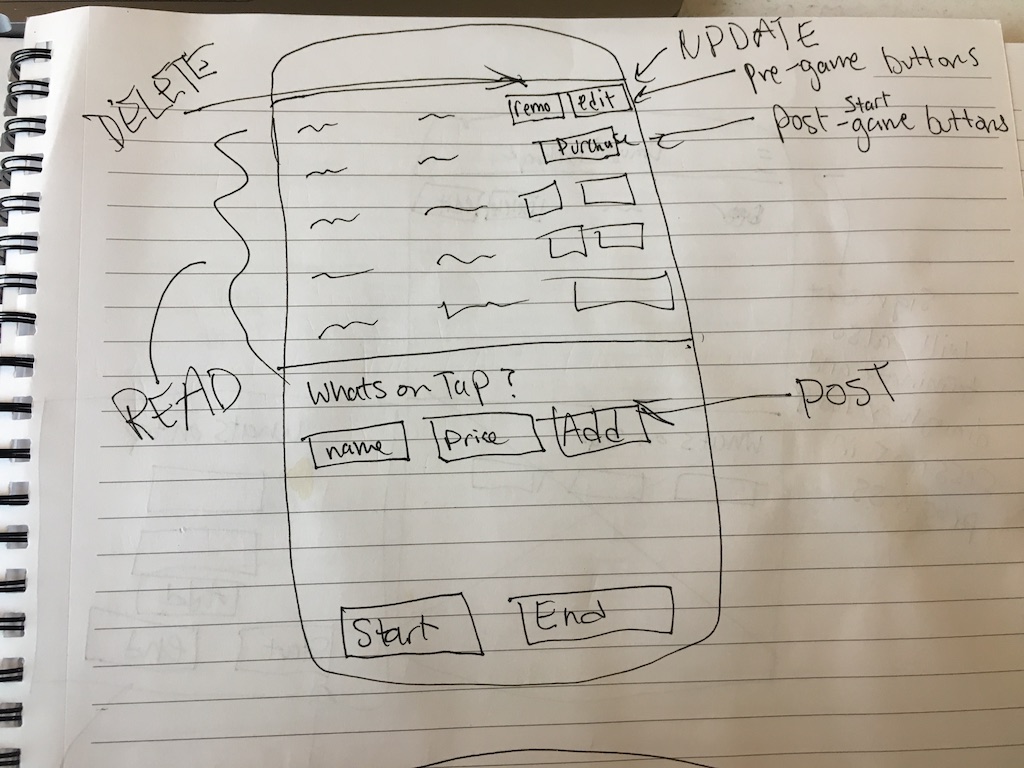 DELETE
UPDATE
pre-game buttons
remo edit
Start
post-game buttons
Purchase
READ
Whats on Tap?
name Price Add
POST
Start End